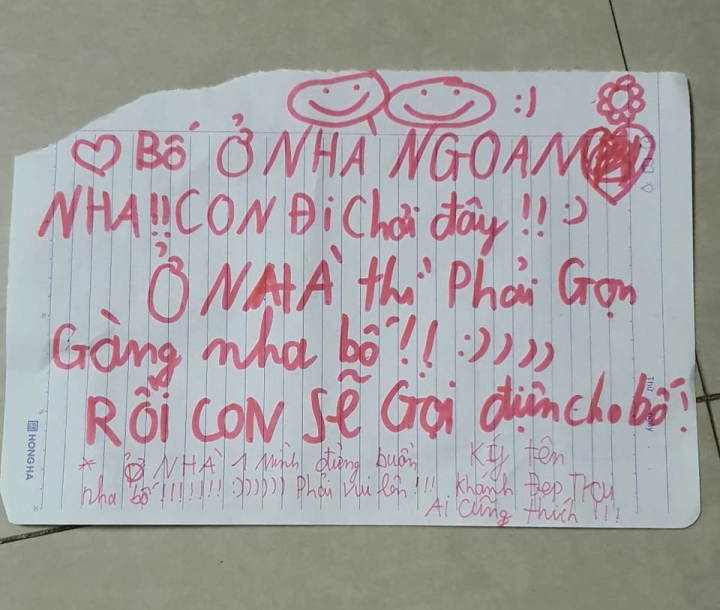 :)
♡ Bố Ở NHÀ NGOAN
NHA!! CON Đi Chơi đây!! :)
Ở NHÀ thì Phải Gọn
Gàng nha bố!! :))))
RỒi CON SẼ Gọi điện cho bố!
* Ở NHÀ 1 Mình đừng buồn
nha bố!!!!!!! :)))))) Phải vui lên!!!
Ký tên
Khánh Đẹp Trai
Ai cũng thích!!!
HONG HA
Thứ
Ngày